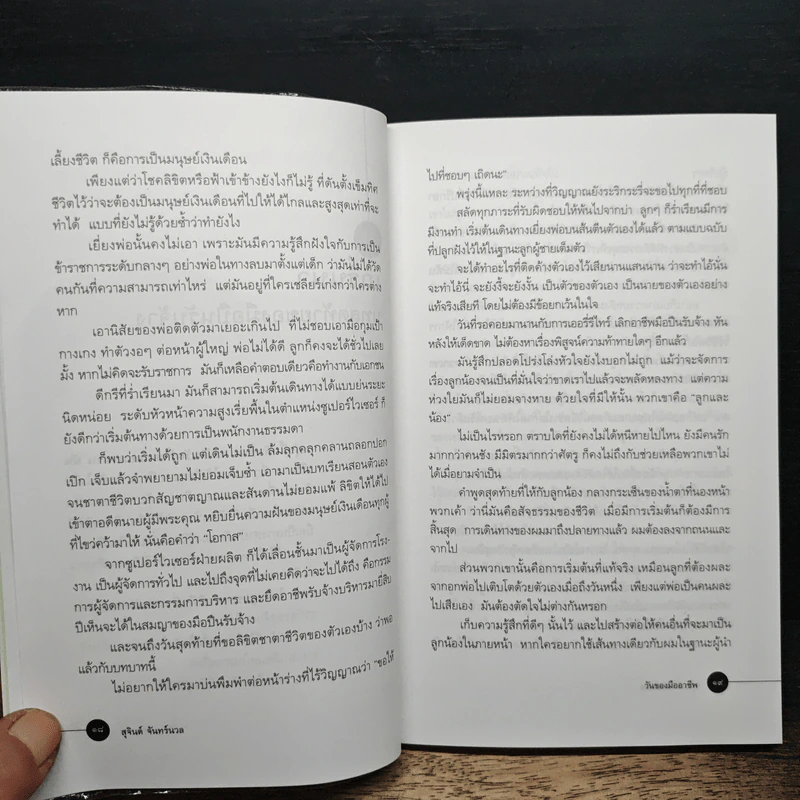 เลี้ยงชีวิต ก็คือการเป็นมนุษย์เงินเดือน
เพียงแต่ว่าโชคลิขิตหรือฟ้าเข้าข้างยังไงก็ไม่รู้ ที่ดันตั้งเข็มทิศ
ชีวิตไว้ว่าจะต้องเป็นมนุษย์เงินเดือนที่ไปให้ได้ไกลและสูงสุดเท่าที่จะ
ทำได้ แบบที่ยังไม่รู้ด้วยซ้ำว่าทำยังไง
เยี่ยงพ่อนั้นคงไม่เอา เพราะมันมีความรู้สึกฝังใจกับการเป็น
ข้าราชการระดับกลางๆ อย่างพ่อในทางลบมาตั้งแต่เด็ก ว่ามันไม่ได้วัด
คนกันที่ความสามารถเท่าไหร่ แต่มันอยู่ที่ใครเชลียร์เก่งกว่าใครต่าง
หาก
เอานิสัยของพ่อติดตัวมาเยอะเกินไป ที่ไม่ชอบเอามือกุมเป้า
กางเกง ทำตัวงอๆ ต่อหน้าผู้ใหญ่ พ่อไม่ได้ดี ลูกก็คงจะได้ชั่วไปเลย
มั้ง หากไม่คิดจะรับราชการ มันก็เหลือคำตอบเดียวคือทำงานกับเอกชน
ดีกรีที่ร่ำเรียนมา มันก็สามารถเริ่มต้นเดินทางได้แบบย่นระยะ
นิดหน่อย ระดับหัวหน้าความสูงเรี่ยพื้นในตำแหน่งซูเปอร์ไวเซอร์ ก็
ยังดีกว่าเริ่มต้นทางด้วยการเป็นพนักงานธรรมดา
ก็พบว่าเริ่มได้ถูก แต่เดินไม่เป็น ล้มลุกคลุกคลานถลอกปอก
เปิก เจ็บแล้วจำพยายามไม่ยอมเจ็บซ้ำ เอามาเป็นบทเรียนสอนตัวเอง
จนชาตาชีวิตบวกสัญชาตญาณและสันดานไม่ยอมแพ้ ลิขิตให้ได้ไป
เข้าตาอดีตนายผู้มีพระคุณ หยิบยื่นความฝันของมนุษย์เงินเดือนทุกผู้
ที่ไขว่คว้ามาให้ นั่นคือคำว่า "โอกาส"
จากซูเปอร์ไวเซอร์ฝ่ายผลิต ก็ได้เลื่อนชั้นมาเป็นผู้จัดการโรง-
งาน เป็นผู้จัดการทั่วไป และไปถึงจุดที่ไม่เคยคิดว่าจะไปได้ถึง คือกรรม
การผู้จัดการและกรรมการบริหาร และยึดอาชีพรับจ้างบริหารมายี่สิบ
ปีเห็นจะได้ในสมญาของมือปืนรับจ้าง
และจนถึงวันสุดท้ายที่ขอลิขิตชาตาชีวิตของตัวเองบ้าง ว่าพอ
แล้วกับบทบาทนี้
ไม่อยากให้ใครมาบ่นพึมพำต่อหน้าร่างที่ไร้วิญญาณว่า "ขอให้
๑๘ สุจินต์ จันทร์นวล
ไปที่ชอบๆ เถิดนะ"
พรุ่งนี้แหละ ระหว่างที่วิญญาณยังระริกระรี่จะขอไปทุกที่ที่ชอบ
สลัดทุกภาระที่รับผิดชอบให้พ้นไปจากบ่า ลูกๆ ก็ร่ำเรียนมีการ
มีงานทำ เริ่มต้นเดินทางเยี่ยงพ่อบนส้นตีนตัวเองได้แล้ว ตามแบบฉบับ
ที่ปลูกฝังไว้ให้ในฐานะลูกผู้ชายเต็มตัว
จะได้ทำอะไรที่ติดค้างตัวเองไว้เสียนานแสนนาน ว่าจะทำไอ้นั่น
จะทำไอ้นี่ จะยังงี้จะยังงั้น เป็นตัวของตัวเอง เป็นนายของตัวเองอย่าง
แท้จริงเสียที โดยไม่ต้องมีข้อยกเว้นในใจ
วันที่รอคอยมานานกับการเออรี่รีไทร์ เลิกอาชีพมือปืนรับจ้าง หัน
หลังให้เด็ดขาด ไม่ต้องหาเรื่องพิสูจน์ความท้าทายใดๆ อีกแล้ว
มันรู้สึกปลอดโปร่งโล่งหัวใจยังไงบอกไม่ถูก แม้ว่าจะจัดการ
เรื่องลูกน้องจนเป็นที่มั่นใจว่าขาดเราไปแล้วจะพลัดหลงทาง แต่ความ
ห่วงใยมันก็ไม่ยอมจางหาย ด้วยใจที่มีให้นั้น พวกเขาคือ "ลูกและ
น้อง"
ไม่เป็นไรหรอก ตราบใดที่ยังคงไม่ได้หนีหายไปไหน ยังมีคนรัก
มากกว่าคนชัง มีมิตรมากกว่าศัตรู ก็คงไม่ถึงกับช่วยเหลือพวกเขาไม่
ได้เมื่อยามจำเป็น
คำพูดสุดท้ายที่ให้กับลูกน้อง กลางกระเซ็นของน้ำตาที่นองหน้า
พวกเค้า ว่านี่มันคือสัจธรรมของชีวิต เมื่อมีการเริ่มต้นก็ต้องมีการ
สิ้นสุด การเดินทางของผมมาถึงปลายทางแล้ว ผมต้องลงจากถนนและ
จากไป
ส่วนพวกเขานั้นคือการเริ่มต้นที่แท้จริง เหมือนลูกที่ต้องผละ
จากอกพ่อไปเติบโตด้วยตัวเองเมื่อถึงวันหนึ่ง เพียงแต่พ่อเป็นคนผละ
ไปเสียเอง มันต้องตัดใจไม่ต่างกันหรอก
เก็บความรู้สึกที่ดีๆ นั้นไว้ และไปสร้างต่อให้คนอื่นที่จะมาเป็น
ลูกน้องในภายหน้า หากใครอยากใช้เส้นทางเดียวกับผมในฐานะผู้นำ
วันของมืออาชีพ ๑๙